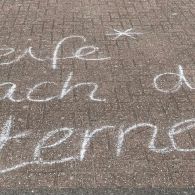 eife
ach d
terne